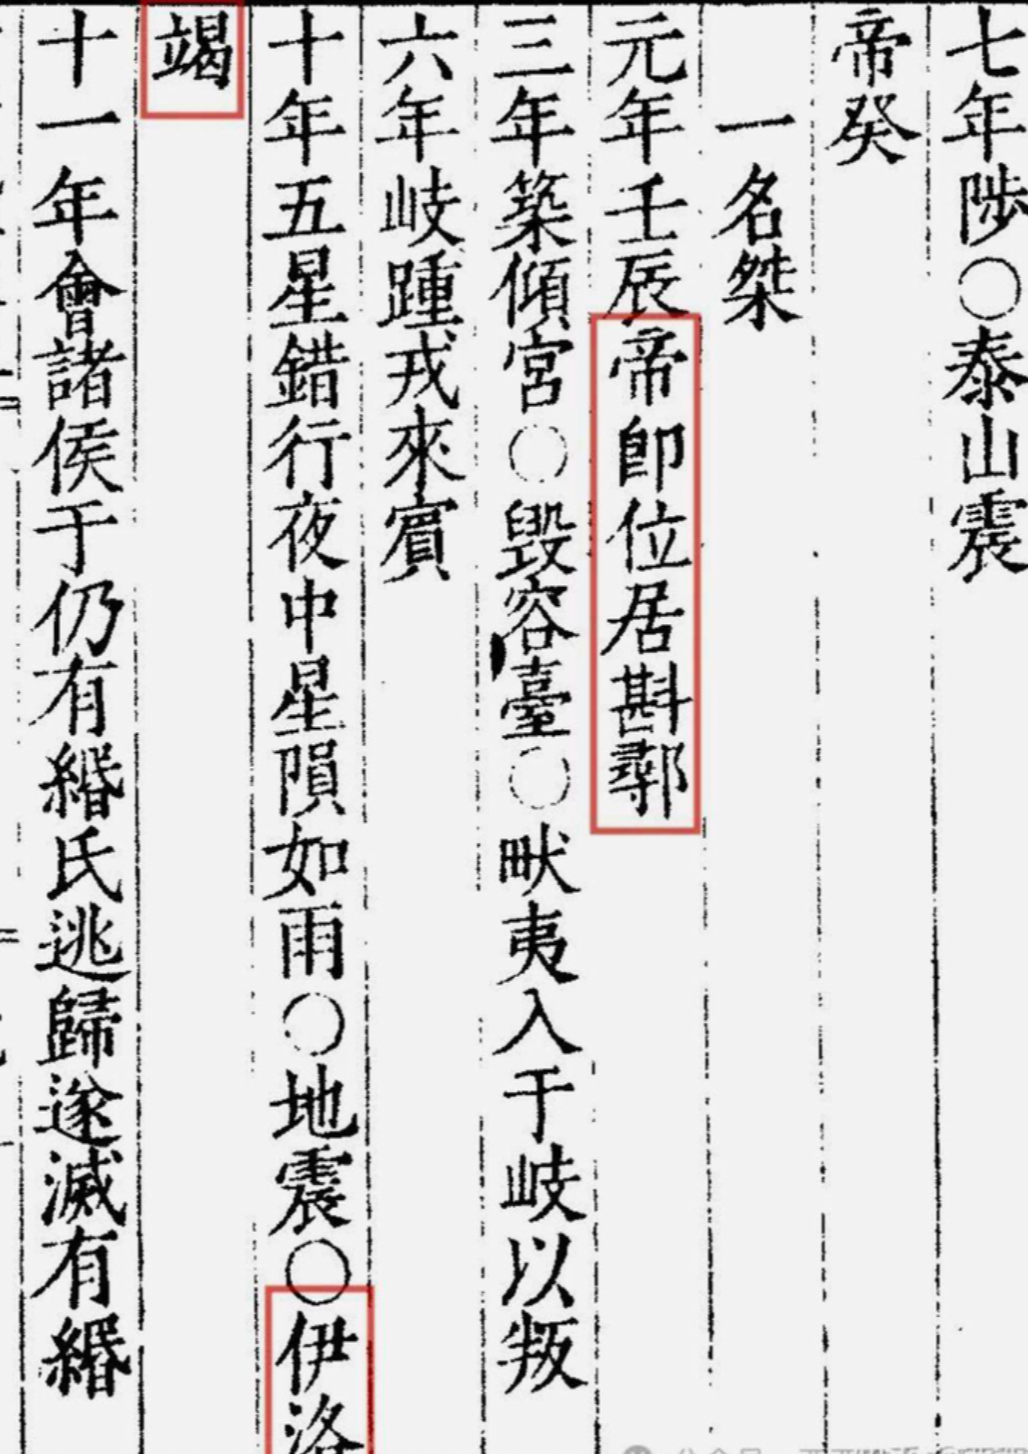 七年陟○泰山震
帝癸
一名桀
元年壬辰帝卽位居斟鄩
三年築傾宮○毀容臺○畎夷入于岐以叛
六年岐踵戎來賓
十年五星錯行夜中星隕如雨○地震○伊洛
竭
十一年會諸侯于仍有緡氏逃歸遂滅有緡